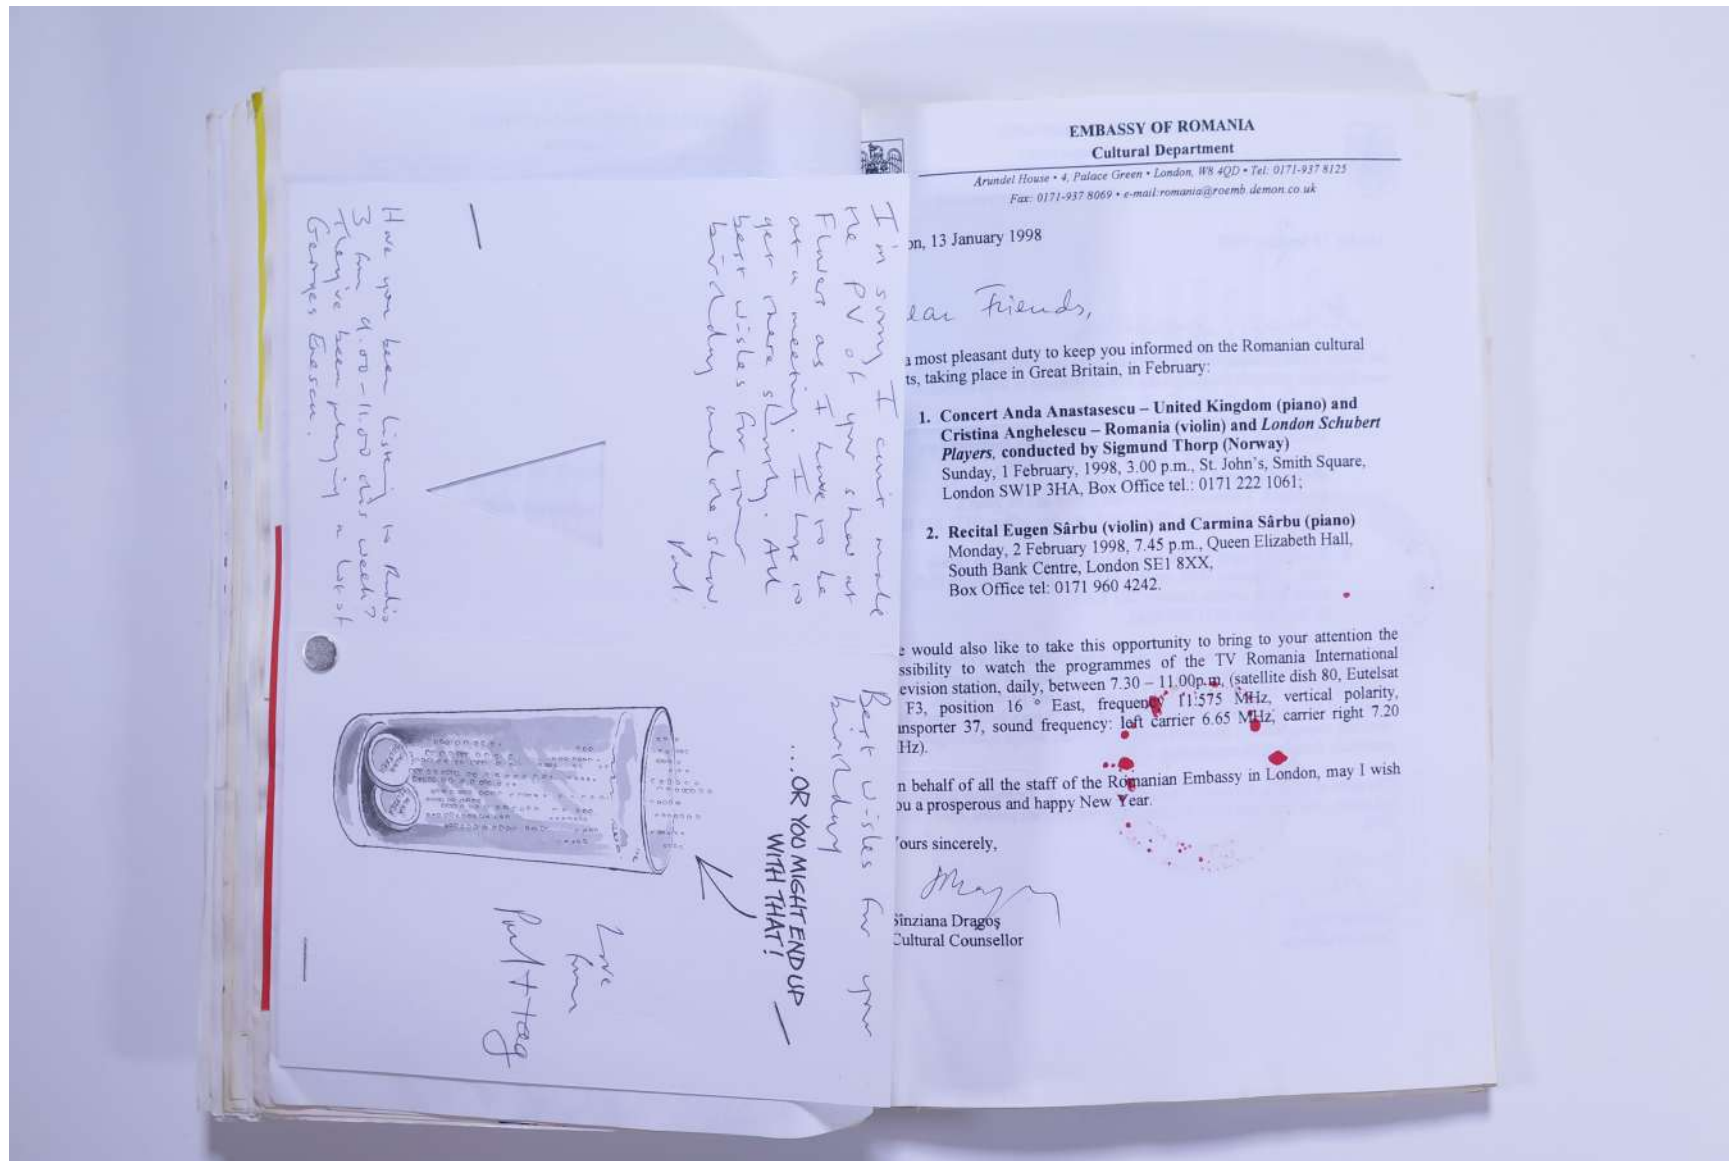 I'm sorry I can't made
the PV of your show at
Flowers as I have to be
at a meeting. I hope to
get there shortly. All
best wishes for your
birthday and the show.
Paul
Have you been listening to Radio
3 from 9.00-11.00 this week?
They've been playing a lot of
Georges Enescu.
Best wishes for your
birthday
...OR YOU MIGHT END UP
WITH THAT!
Love
from
Paul +
EMBASSY OF ROMANIA
Cultural Department
Arundel House • 4, Palace Green • London, W8 4QD • Tel: 0171-937 8125
Fax: 0171-937 8069 • e-mail:romania@roemb.demon.co.uk
on, 13 January 1998
ear Friends,
a most pleasant duty to keep you informed on the Romanian cultural
ts, taking place in Great Britain, in February:
1. Concert Anda Anastasescu – United Kingdom (piano) and
Cristina Anghelescu – Romania (violin) and London Schubert
Players, conducted by Sigmund Thorp (Norway)
Sunday, 1 February, 1998, 3.00 p.m., St. John's, Smith Square,
London SW1P 3HA, Box Office tel.: 0171 222 1061;
2. Recital Eugen Sârbu (violin) and Carmina Sârbu (piano)
Monday, 2 February 1998, 7.45 p.m., Queen Elizabeth Hall,
South Bank Centre, London SE1 8XX,
Box Office tel: 0171 960 4242.
e would also like to take this opportunity to bring to your attention the
ssibility to watch the programmes of the TV Romania International
evision station, daily, between 7.30 – 11.00p.m. (satellite dish 80, Eutelsat
F3, position 16 ° East, frequency 11.575 MHz, vertical polarity,
ansporter 37, sound frequency: left carrier 6.65 MHz; carrier right 7.20
Hz).
n behalf of all the staff of the Romanian Embassy in London, may I wish
ou a prosperous and happy New Year.
ours sincerely,
Sînziana Dragoş
Cultural Counsellor